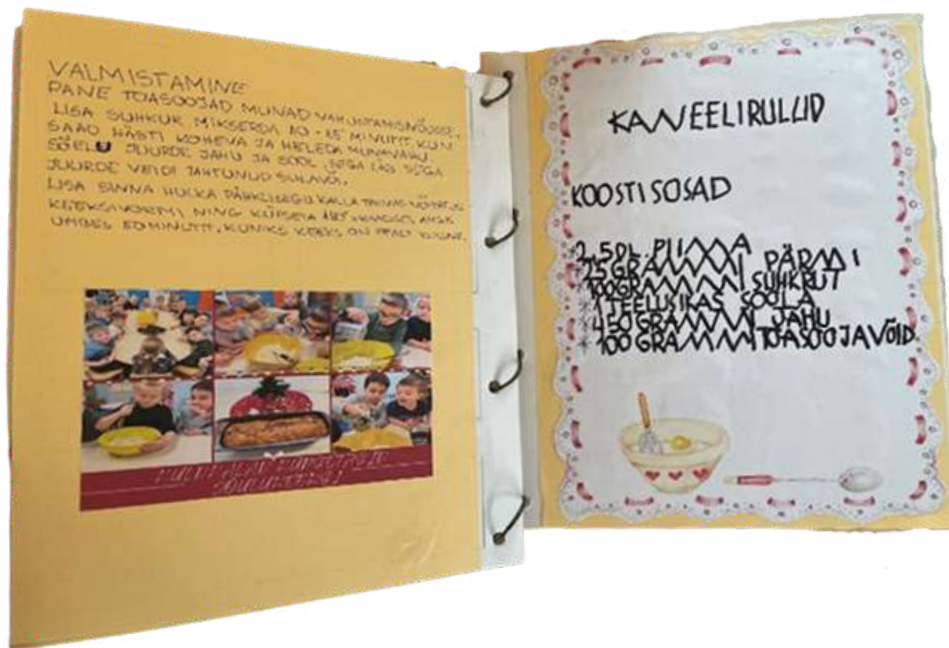 VALMISTAMINE
PANE TOASOOJAD MUNAD VAHUSTAMISNÕUSSE,
LISA SUHKUR MIKSERDA 10-15 MINUTIT, KUNI
SAAD HÄSTI KOHEVA JA HELEDA MUNAVAHU.
SÕELU JUURDE JAHU JA SOOL. SEGA LÄBI SEGA
JUURDE VEIDI JAHTUNUD SULAVÕI.
LISA SINNA HULKA PÄHKLISEGU KALLA TAINAS
KEEKSIVORMI NING KÜPSETA
UMBES 50 MINUTIT, KUNIKS KEEKS ON PEALT KULDNE.
KANEELIRULLID
KOOSTISOSAD
*2,5DL. PIIMA
*25GRAMMI PÄRMI
*100GRAMMI SUHKRUT
*1TEELUSIKAS SOOLA
*450GRAMMI JAHU
*100GRAMMI TOASOOJAVÕID